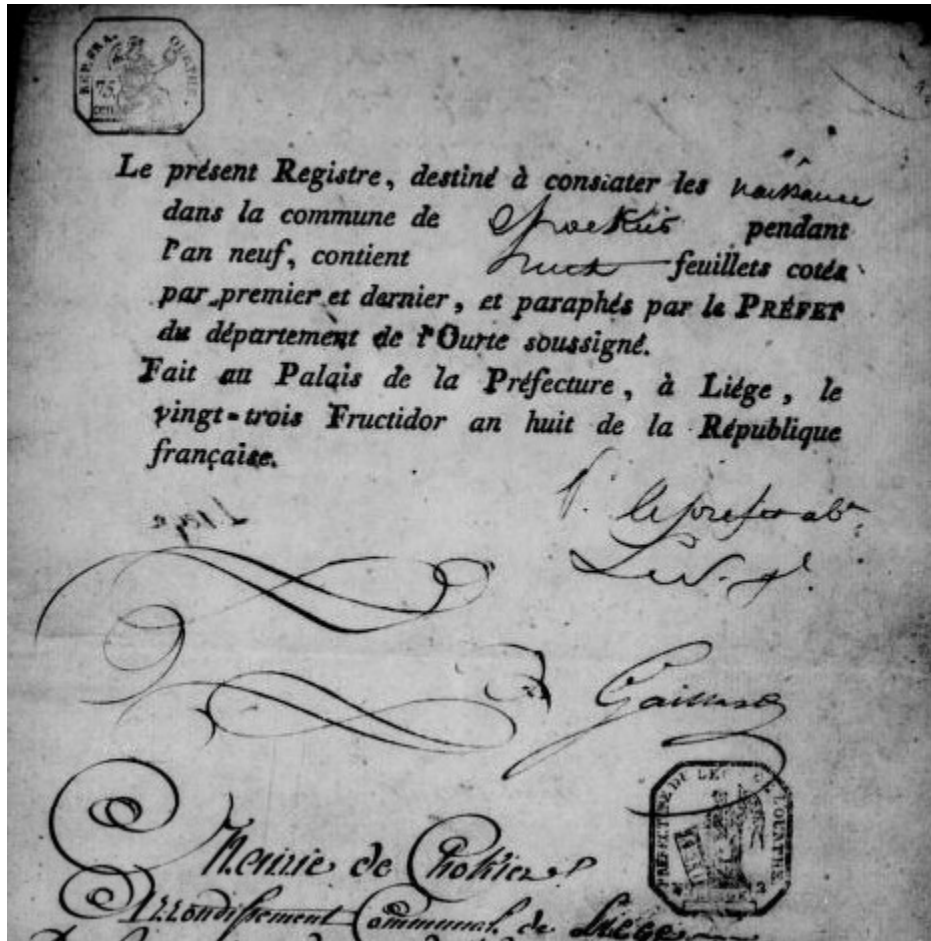 REP. FRA. OURTHE.
75
CEN.
Le présent Registre, destiné à constater les naissance
dans la commune de Chockier pendant
l'an neuf, contient huit feuillets cotés
par premier et dernier, et paraphés par le PRÉFET
du département de l'Ourte soussigné.
Fait au Palais de la Préfecture, à Liége, le
vingt-trois Fructidor an huit de la République
française.
P. le prefet abt.
Gaillard
PREFECTURE DU DE L'OURTHE
Mairie de Chokier
Arrondissement Communal de Liége